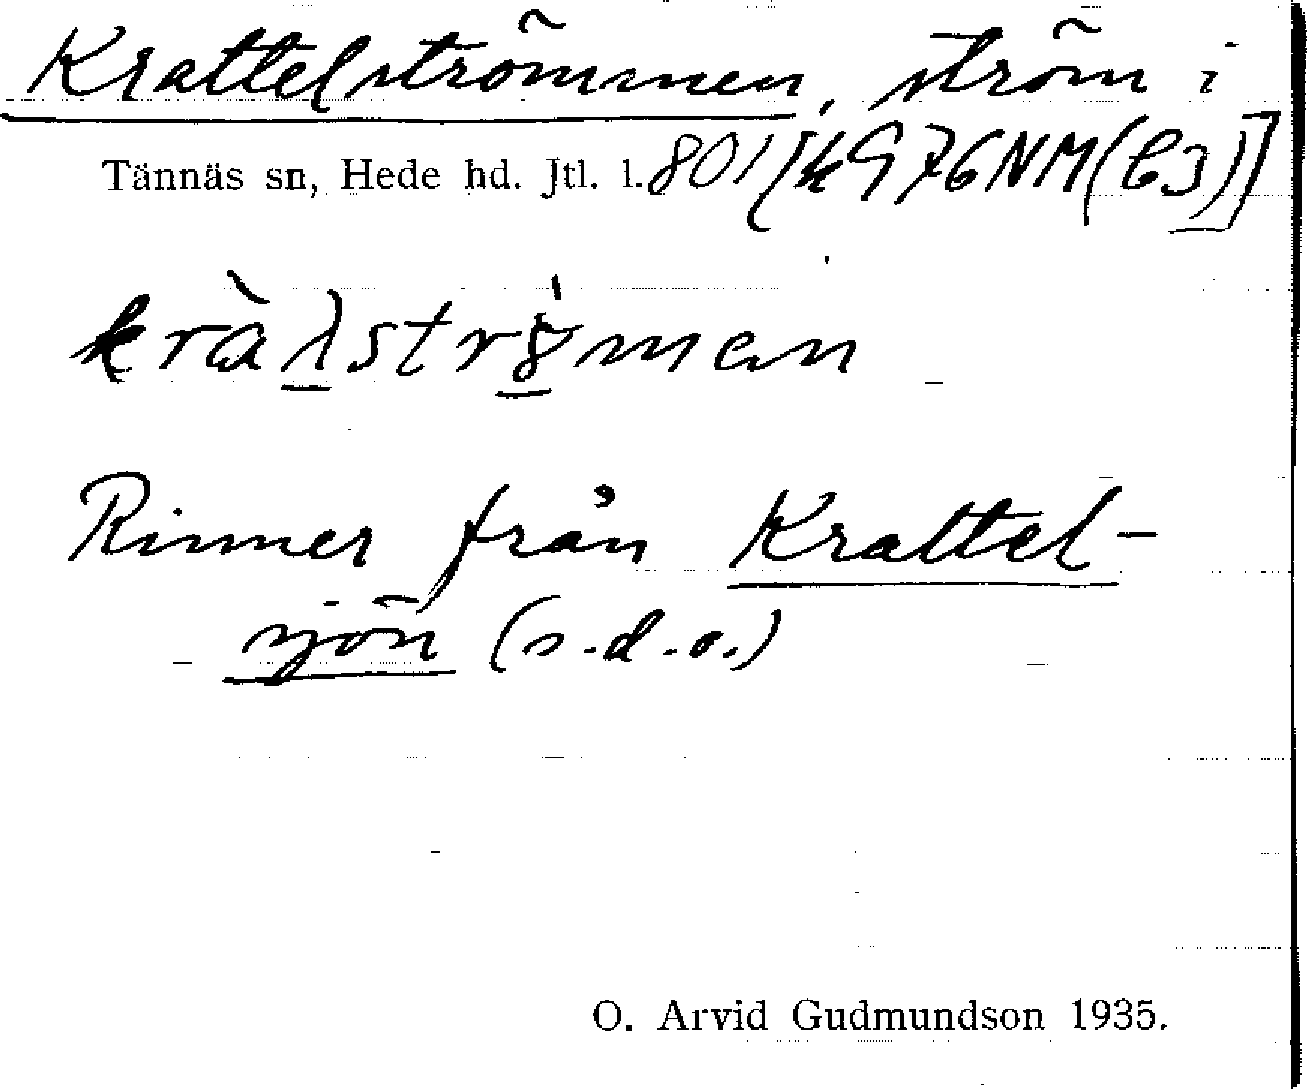 Krattelströmmen, ström i
Tännäs sn, Hede hd. Jtl. l. 801 [kG76NM(C3)]
Rinner från Krattel-
sjön (s.d.o.)
O. Arvid Gudmundson 1935.